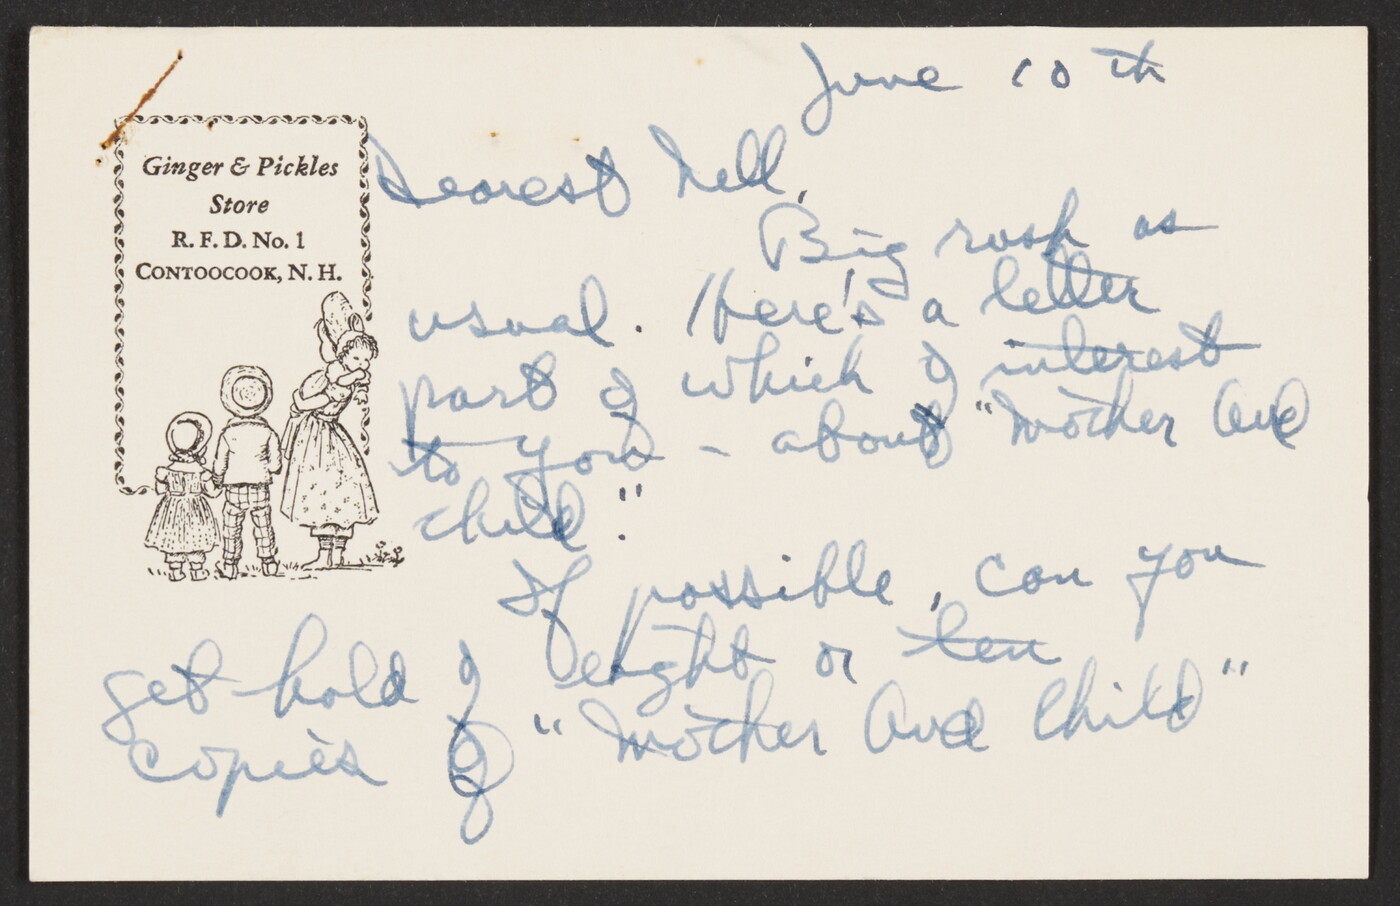 Ginger & Pickles
Store
R. F. D. No. 1
CONTOOCOOK, N. H.
June 10th
Dearest Nell,
Big rush as
usual. Here's a letter
part of which of interest
to you - about "Mother and
child".
If possible, can you
get hold of eight or ten
copies of "Mother and Child"